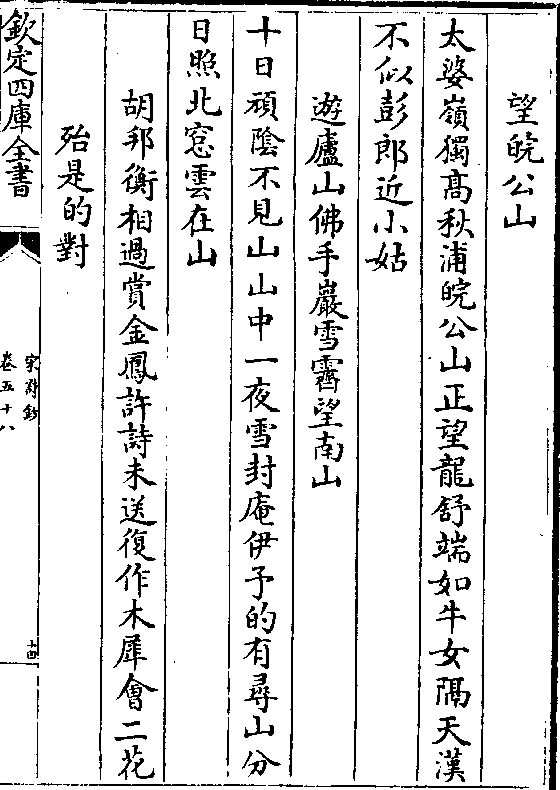 望皖公山
太婆嶺獨髙秋浦皖公山正望龍舒端如牛女隔天漢
不似彭郎近小姑
遊廬山佛手巖雪霽望南山
十日頑陰不見山山中一夜雪封庵伊予的有尋山分
日照北窓雲在山
胡邦衡相過賞金鳳許詩未送復作木犀㑹二花
殆是的對
欽定四庫全書
宋詩鈔
卷五十八
十四